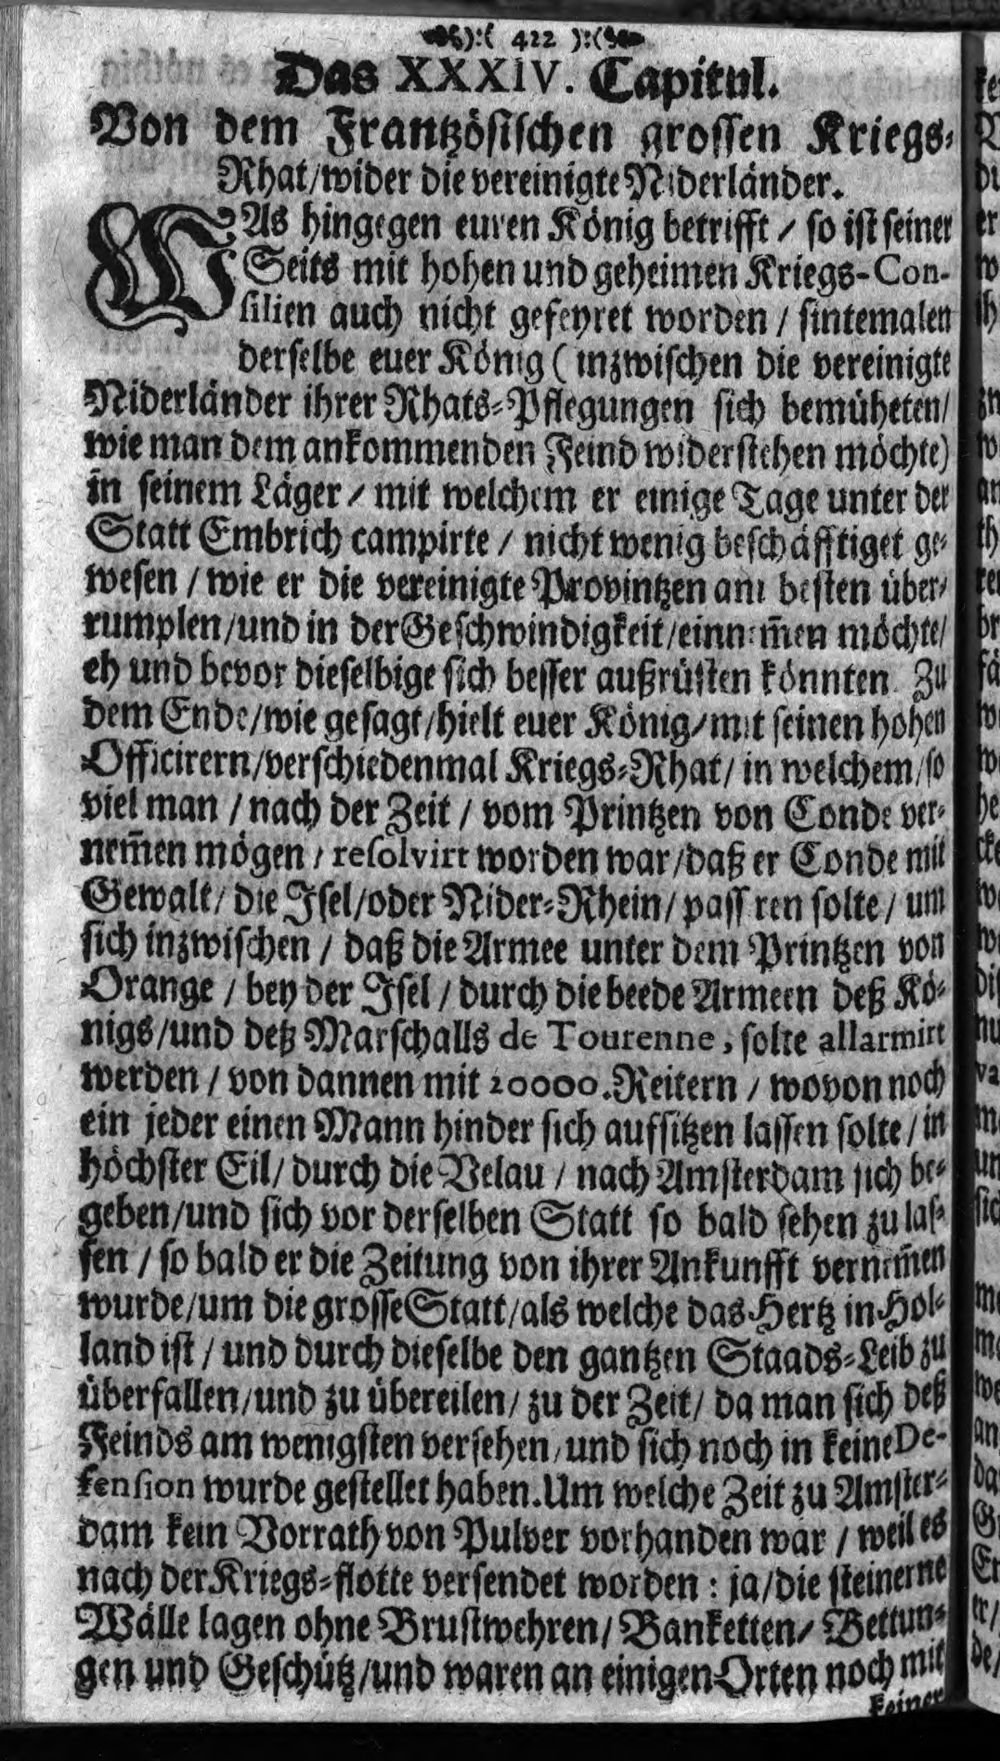 ):( 422 ):(
Das XXXIV. Capitul.
Von dem Frantzösischen grossen Kriegs-
Rhat/wider die vereinigte Niderländer.
WAs hingegen euren König betrifft / so ist seiner
Seits mit hohen und geheimen Kriegs-Con-
silien auch nicht gefeyret worden / sintemalen
derselbe euer König (inzwischen die vereinigte
Niderländer ihrer Rhats-Pflegungen sich bemüheten/
wie man dem ankommenden Feind widerstehen möchte)
in seinem Läger / mit welchem er einige Tage unter der
Statt Embrich campirte / nicht wenig beschäfftiget ge-
wesen / wie er die vereinigte Provintzen am besten über-
rumplen/und in der Geschwindigkeit/einnem̃en möchte/
eh und bevor dieselbige sich besser außrüsten könnten. Zu
dem Ende/wie gesagt/hielt euer König/mit seinen hohen
Officirern/verschiedenmal Kriegs-Rhat/ in welchem/so
viel man / nach der Zeit / vom Printzen von Conde ver-
nem̃en mögen / resolvirt worden war/daß er Conde mit
Gewalt/ die Isel/oder Nider-Rhein/ passiren solte/ um
sich inzwischen / daß die Armee unter dem Printzen von
Orange / bey der Isel / durch die beede Armeen deß Kö-
nigs/und deß Marschalls de Tourenne, solte allarmirt
werden / von dannen mit 20000. Reitern / wovon noch
ein jeder einen Mann hinder sich aufsitzen lassen solte/ in
höchster Eil/ durch die Velau / nach Amsterdam sich be-
geben/und sich vor derselben Statt so bald sehen zu las-
sen / so bald er die Zeitung von ihrer Ankunfft vernem̃en
wurde/um die grosse Statt/als welche das Hertz in Hol-
land ist / und durch dieselbe den gantzen Staads-Leib zu
überfallen/und zu übereilen/ zu der Zeit/ da man sich deß
Feinds am wenigsten versehen/und sich noch in keine De-
fension wurde gestellet haben. Um welche Zeit zu Amster-
dam kein Vorrath von Pulver vorhanden war / weil es
nach der Kriegs-flotte versendet worden : ja/die steinerne
Wälle lagen ohne Brustwehren/ Banketten/ Bettun-
gen und Geschütz/und waren an einigen Orten noch mit
keiner